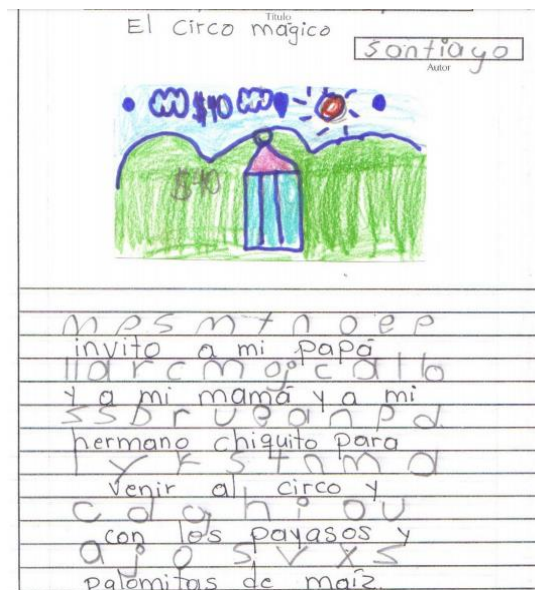 Título
El circo mágico
Santiayo
Autor
$40
$40
m p s m t n o e p
invito a mi papá
ll a r c m o j c a l l o
y a mi mamá y a mi
s s b r u e a n p d
hermano chiquito para
l y r s t n m a
venir al circo y
c d g h i o u
con los payasos y
a j o s v x s
palomitas de maíz.